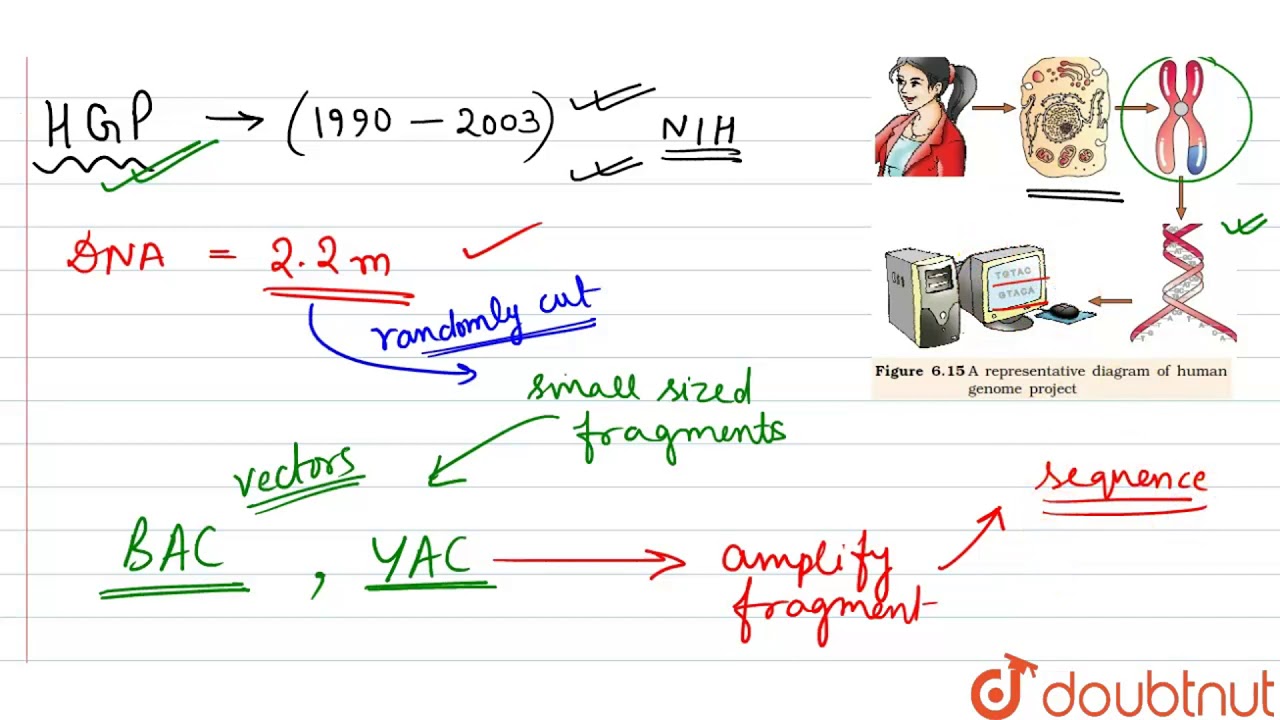 HGP → (1990 – 2003) NIH
DNA = 2.2 m
randomly cut
small sized
fragments
vectors
BAC , YAC → amplify
fragment
sequence
TGTAC
GTACA
Figure 6.15 A representative diagram of human
genome project
doubtnut